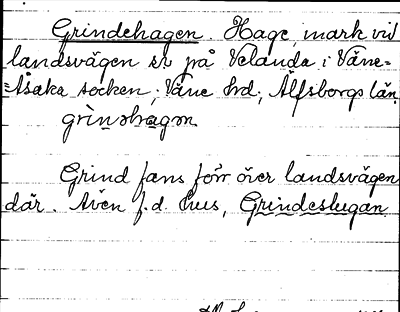 Grindehagen. Hage, mark vid
landsvägen er på Velanda i Väne-
=Åsaka socken; Väne hrd; Älfsborgs län.
grindhagen
Grind fans förr över landsvägen
där. Även f.d. hus, Grindeslugan